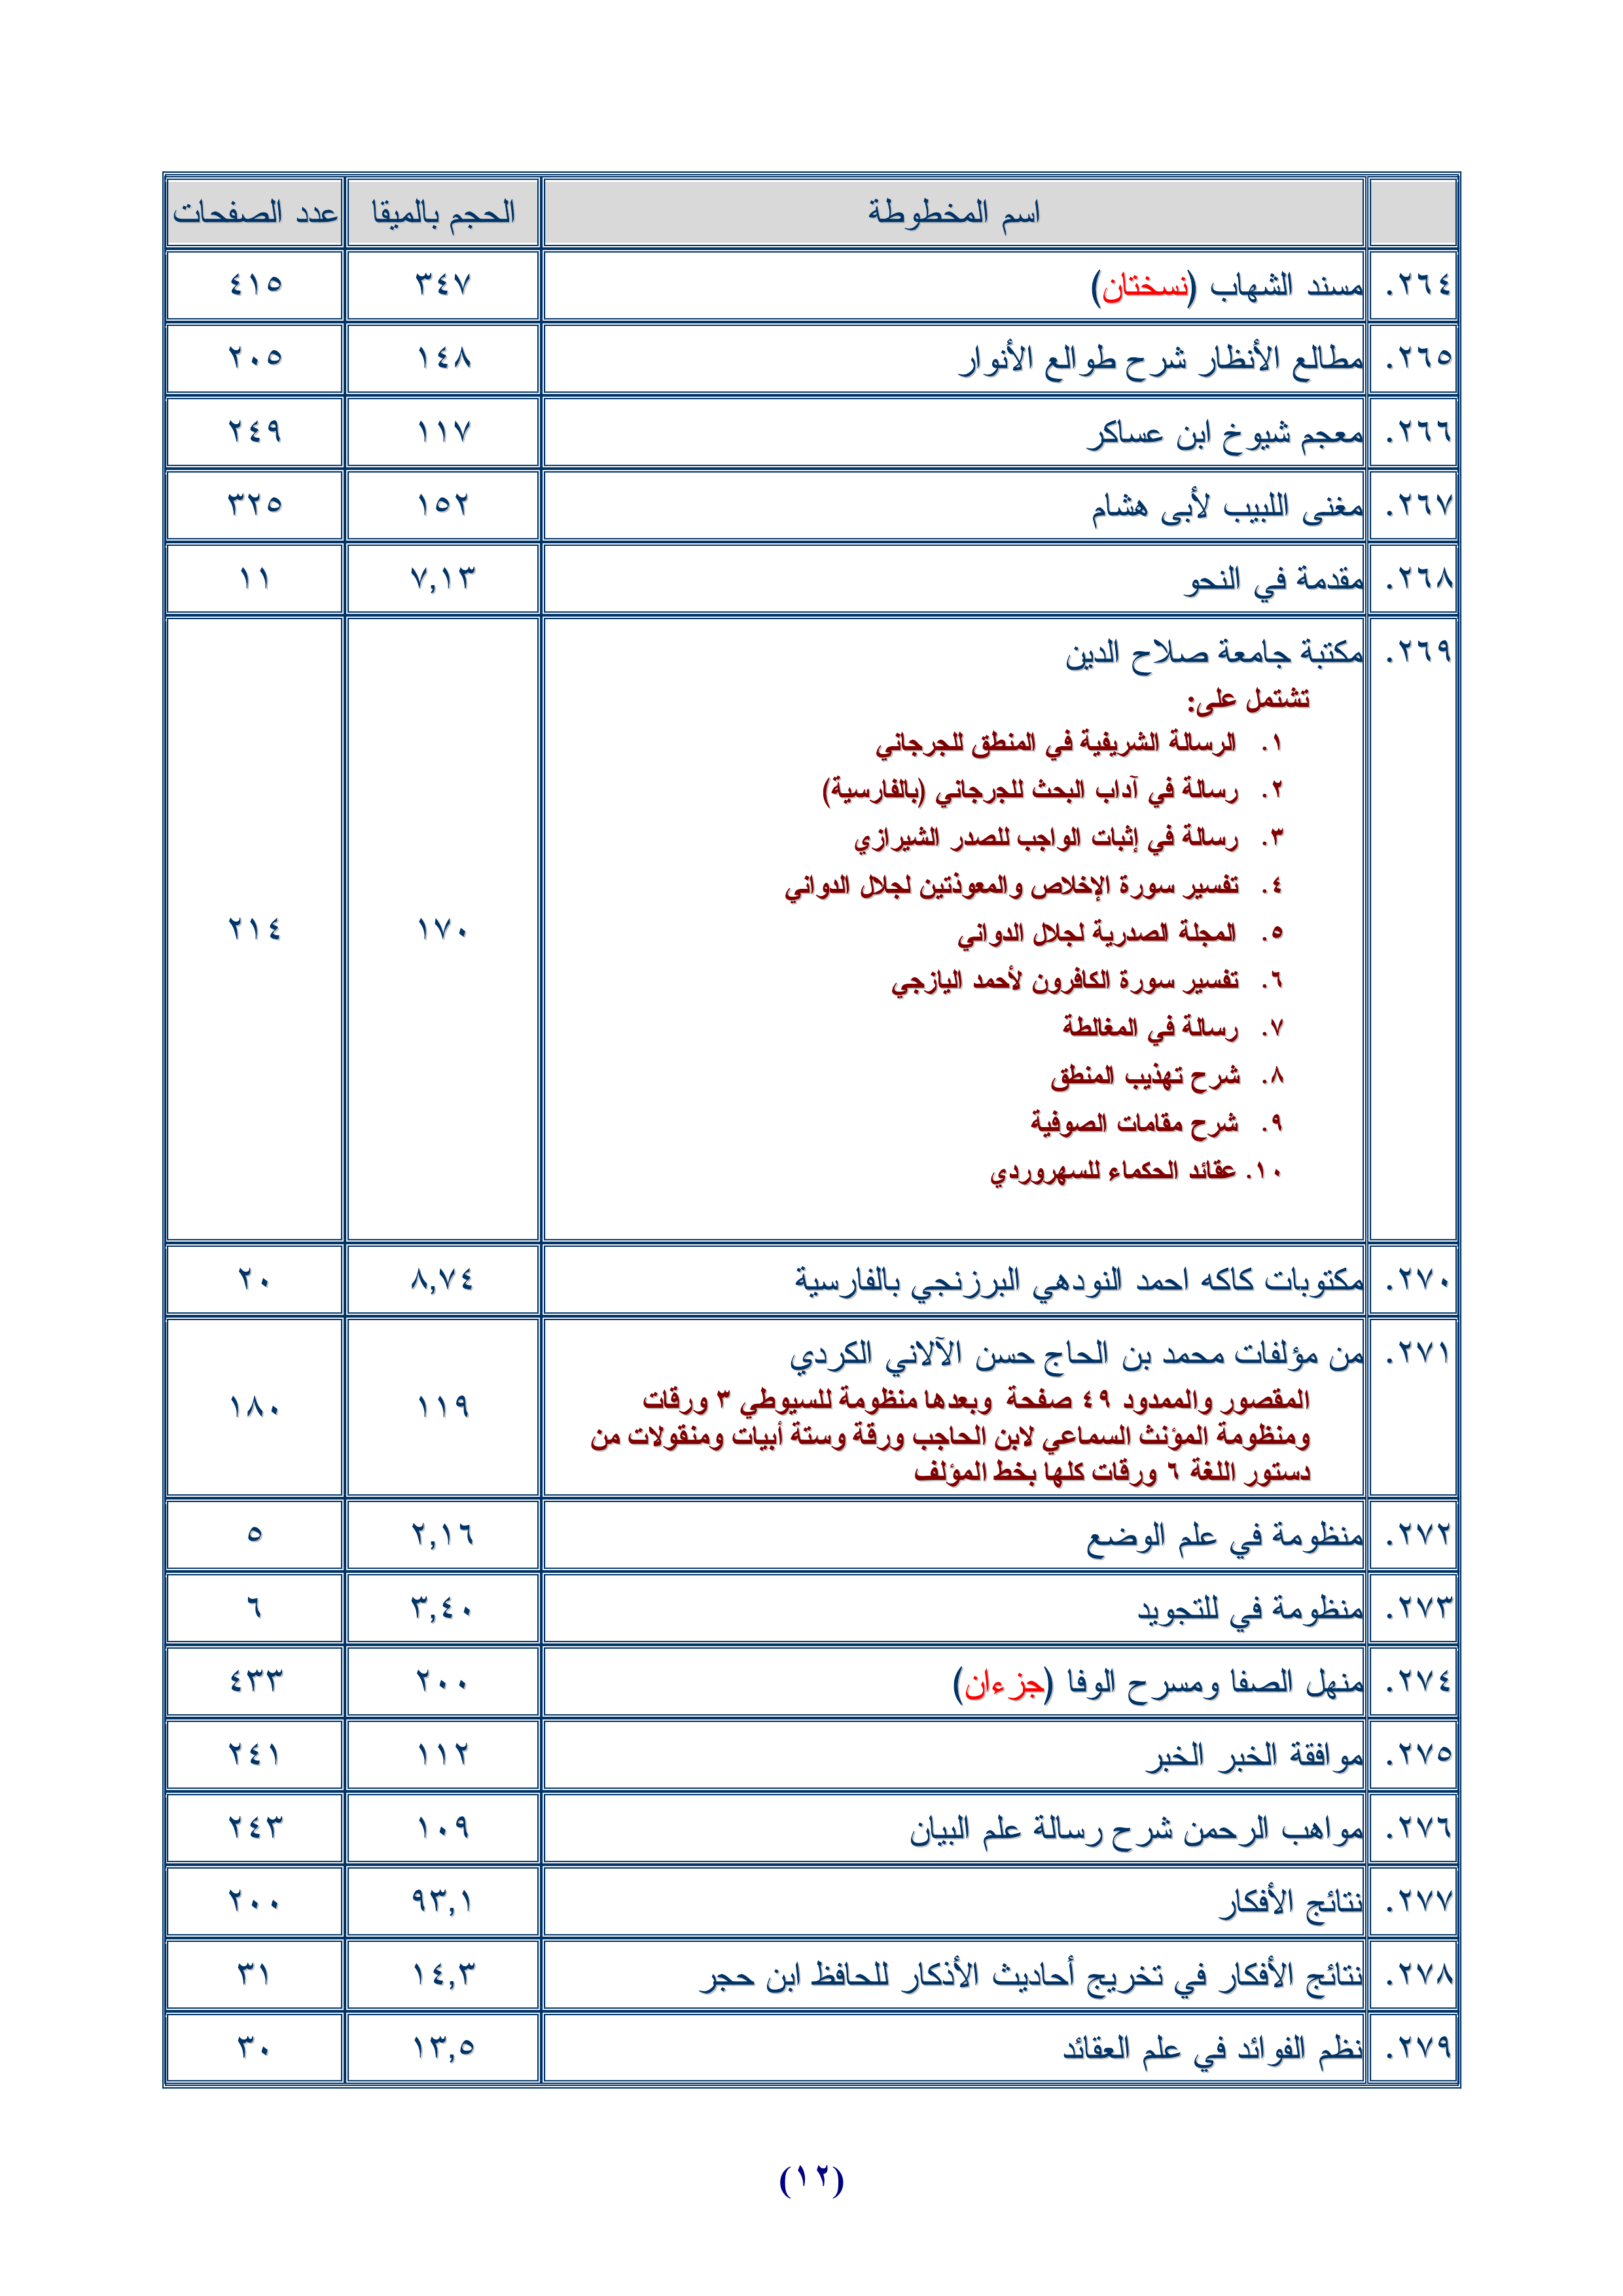 اسم المخطوطة الحجم بالميقا عدد الصفحات
٢٦٤. مسند الشهاب (نسختان) ٣٤٧ ٤١٥
٢٦٥. مطالع الأنظار شرح طوالع الأنوار ١٤٨ ٢٠٥
٢٦٦. معجم شيوخ ابن عساكر ١١٧ ٢٤٩
٢٦٧. مغنى اللبيب لأبى هشام ١٥٢ ٣٢٥
٢٦٨. مقدمة في النحو ٧,١٣ ١١
٢٦٩. مكتبة جامعة صلاح الدين
تشتمل على:
١. الرسالة الشريفية في المنطق للجرجاني
٢. رسالة في آداب البحث للجرجاني (بالفارسية)
٣. رسالة في إثبات الواجب للصدر الشيرازي
٤. تفسير سورة الإخلاص والمعوذتين لجلال الدواني
٥. المجلة الصدرية لجلال الدواني ١٧٠ ٢١٤
٦. تفسير سورة الكافرون لأحمد اليازجي
٧. رسالة في المغالطة
٨. شرح تهذيب المنطق
٩. شرح مقامات الصوفية
١٠. عقائد الحكماء للسهروردي
٢٧٠. مكتوبات كاكه احمد النودهي البرزنجي بالفارسية ٨,٧٤ ٢٠
٢٧١. من مؤلفات محمد بن الحاج حسن الآلاني الكردي
المقصور والممدود ٤٩ صفحة وبعدها منظومة للسيوطي ٣ ورقات ١١٩ ١٨٠
ومنظومة المؤنث السماعي لابن الحاجب ورقة وستة أبيات ومنقولات من
دستور اللغة ٦ ورقات كلها بخط المؤلف
٢٧٢. منظومة في علم الوضع ٢,١٦ ٥
٢٧٣. منظومة في للتجويد ٣,٤٠ ٦
٢٧٤. منهل الصفا ومسرح الوفا (جزءان) ٢٠٠ ٤٣٣
٢٧٥. موافقة الخبر الخبر ١١٢ ٢٤١
٢٧٦. مواهب الرحمن شرح رسالة علم البيان ١٠٩ ٢٤٣
٢٧٧. نتائج الأفكار ٩٣,١ ٢٠٠
٢٧٨. نتائج الأفكار في تخريج أحاديث الأذكار للحافظ ابن حجر ١٤,٣ ٣١
٢٧٩. نظم الفوائد في علم العقائد ١٣,٥ ٣٠
(١٢)